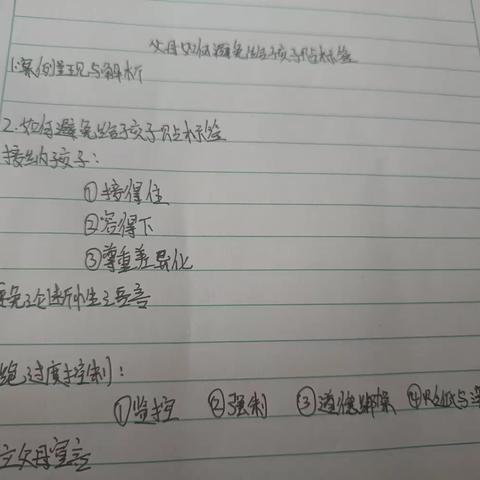 父母如何避免给孩子贴标签
1.案例呈现与解析
2.如何避免给孩子贴标签
接纳孩子：
①接得住
②容得下
③尊重差异化
免论断性语言
绝过度控制：
①监控 ②强制 ③道德绑架 ④贬低与
立父母宣言